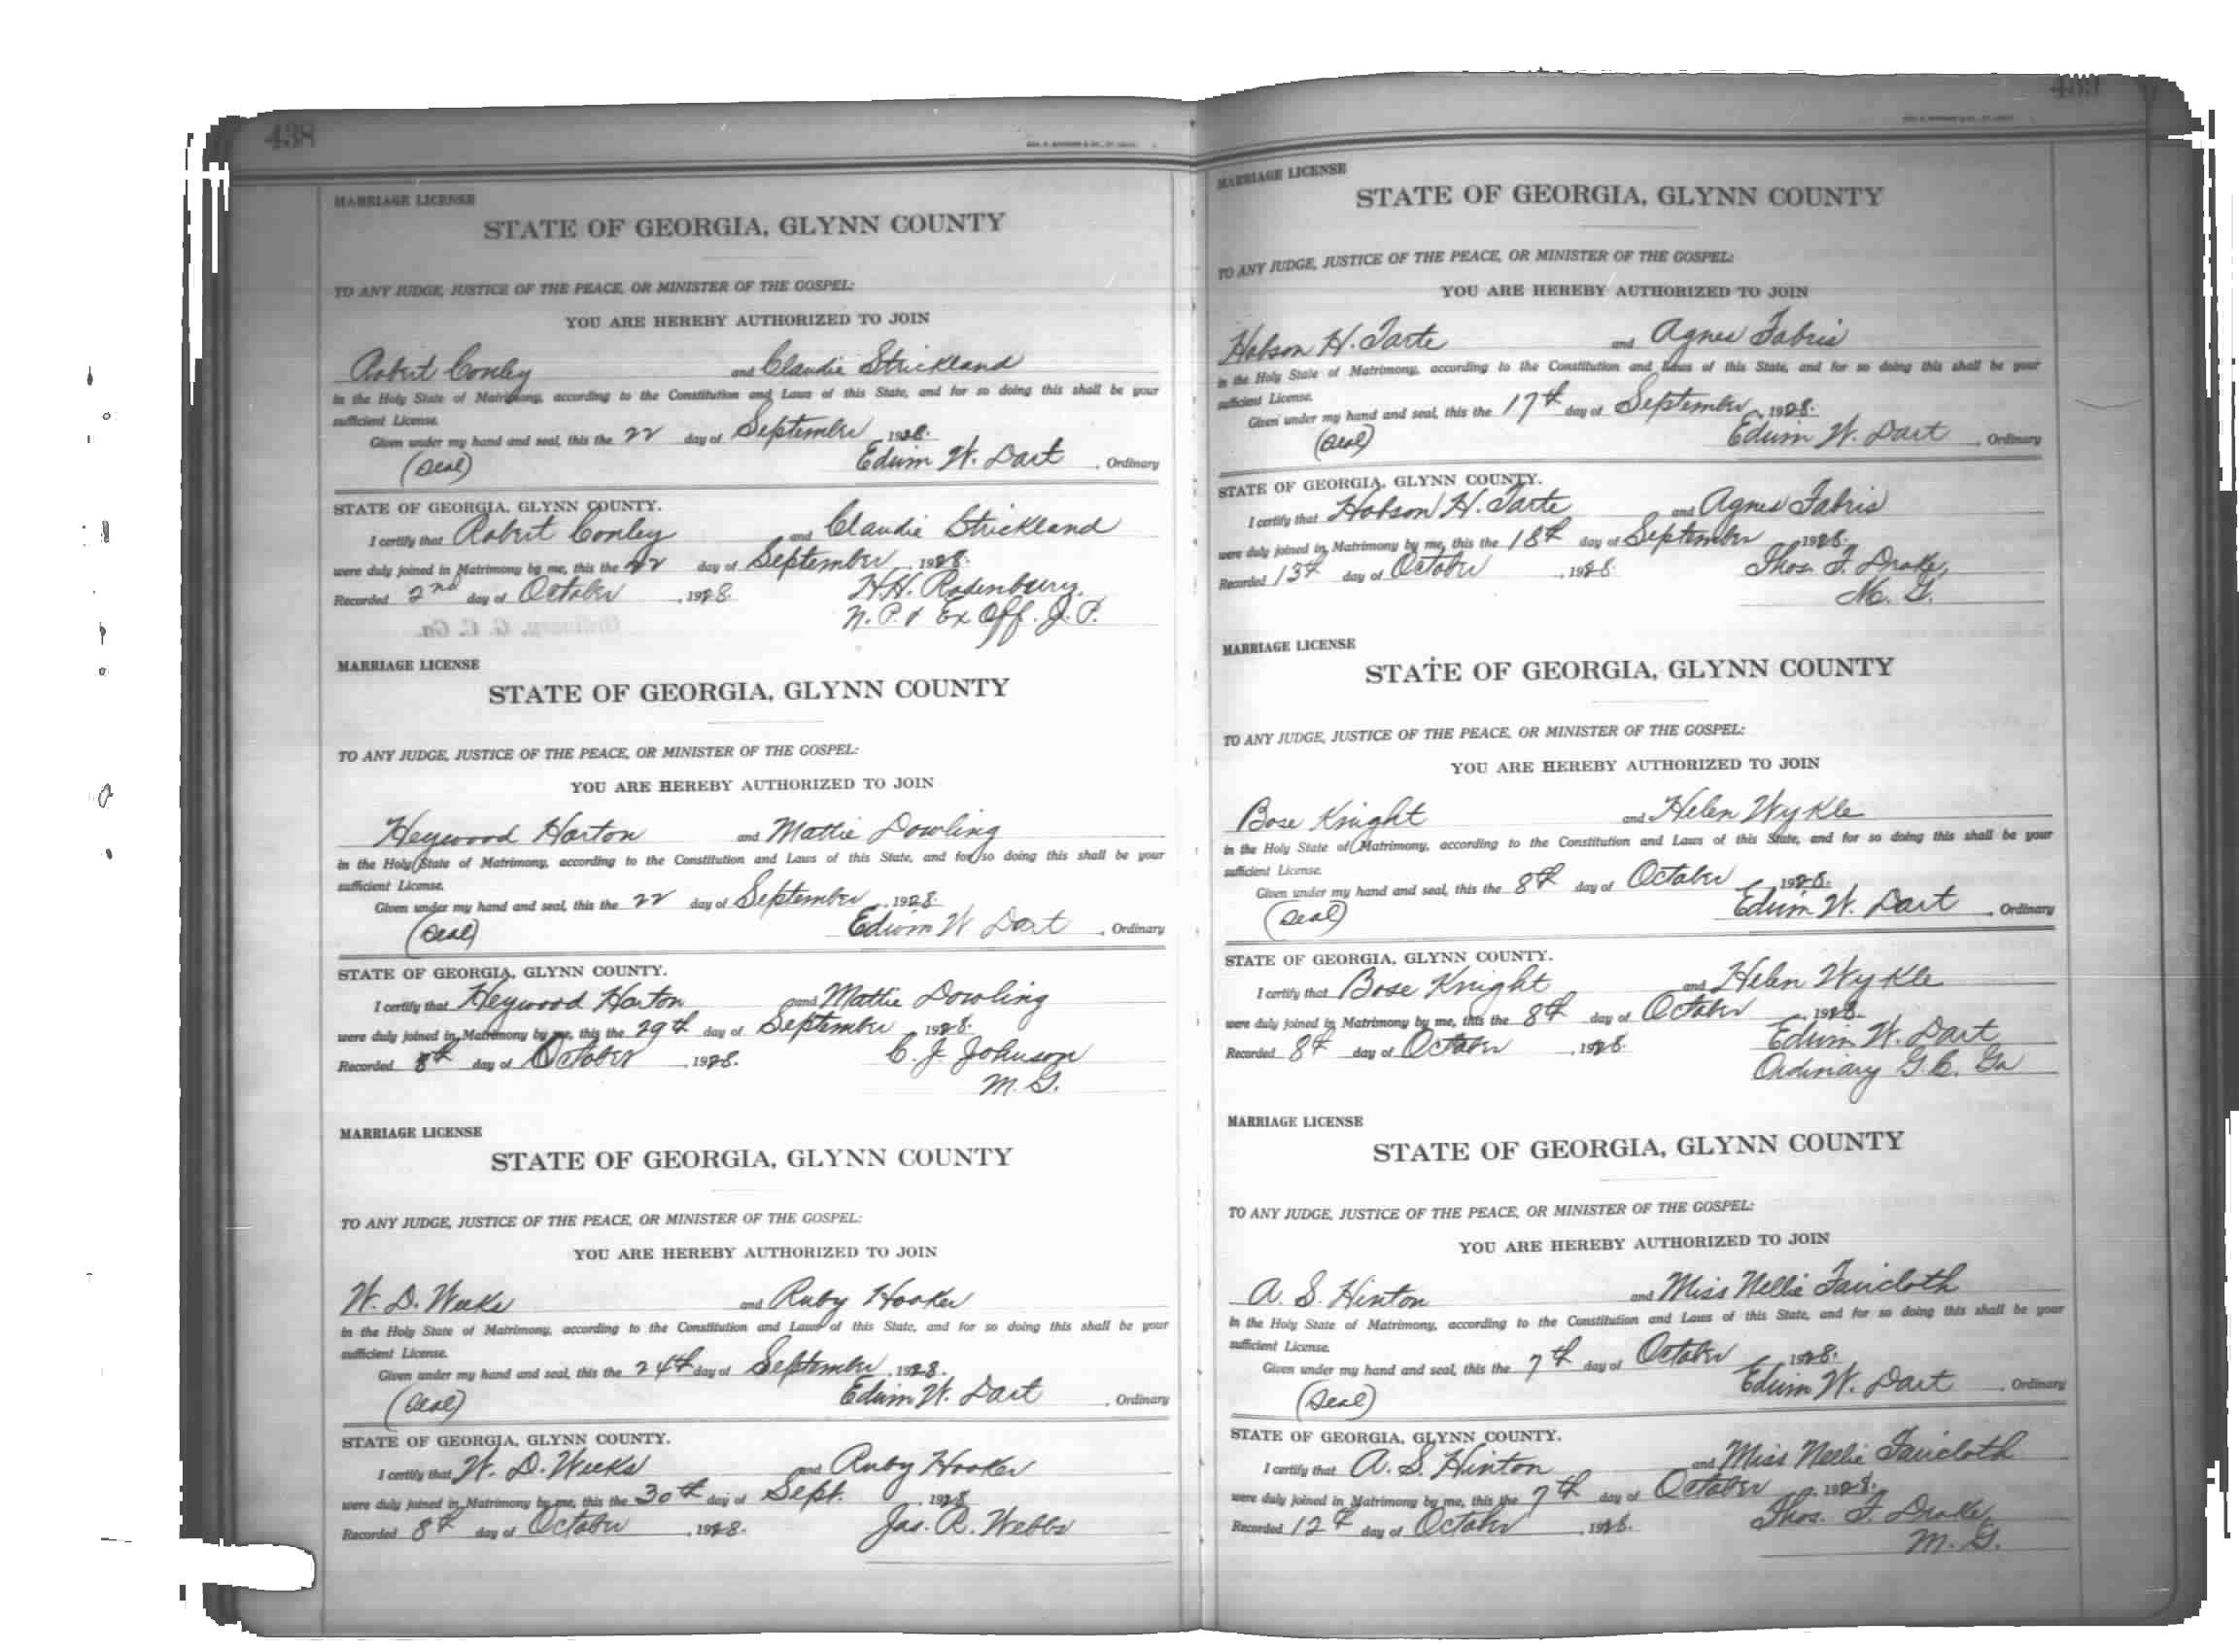 438
MARRIAGE LICENSE
STATE OF GEORGIA, GLYNN COUNTY
TO ANY JUDGE, JUSTICE OF THE PEACE, OR MINISTER OF THE GOSPEL:
YOU ARE HEREBY AUTHORIZED TO JOIN
Robert Conley and Claudie Strickland
in the Holy State of Matrimony, according to the Constitution and Laws of this State, and for so doing this shall be your
sufficient License.
Given under my hand and seal, this the 22 day of September, 1928.
(Seal) Edwin W. Dart, Ordinary
STATE OF GEORGIA, GLYNN COUNTY.
I certify that Robert Conley and Claudie Strickland
were duly joined in Matrimony by me, this the 22 day of September, 1928.
Recorded 2nd day of October, 1928. H.H. Rodenburg.
N. P. & Ex Off. J. P.
MARRIAGE LICENSE
STATE OF GEORGIA, GLYNN COUNTY
TO ANY JUDGE, JUSTICE OF THE PEACE, OR MINISTER OF THE GOSPEL:
YOU ARE HEREBY AUTHORIZED TO JOIN
Heywood Harton and Mattie Dowling
in the Holy State of Matrimony, according to the Constitution and Laws of this State, and for so doing this shall be your
sufficient License.
Given under my hand and seal, this the 22 day of September, 1928.
(Seal) Edwin W Dart, Ordinary
STATE OF GEORGIA, GLYNN COUNTY.
I certify that Heywood Harton and Mattie Dowling
were duly joined in Matrimony by me, this the 29th day of September, 1928.
Recorded 8th day of October, 1928. C. J. Johnson
M. G.
MARRIAGE LICENSE
STATE OF GEORGIA, GLYNN COUNTY
TO ANY JUDGE, JUSTICE OF THE PEACE, OR MINISTER OF THE GOSPEL:
YOU ARE HEREBY AUTHORIZED TO JOIN
W. D. Weeks and Ruby Hooker
in the Holy State of Matrimony, according to the Constitution and Laws of this State, and for so doing this shall be your
sufficient License.
Given under my hand and seal, this the 24th day of September, 1928.
(Seal) Edwin W. Dart, Ordinary
STATE OF GEORGIA, GLYNN COUNTY.
I certify that W. D. Weeks and Ruby Hooker
were duly joined in Matrimony by me, this the 30th day of Sept., 1928
Recorded 8th day of October, 1928. Jas. R. Webbs
MARRIAGE LICENSE
STATE OF GEORGIA, GLYNN COUNTY
TO ANY JUDGE, JUSTICE OF THE PEACE, OR MINISTER OF THE GOSPEL:
YOU ARE HEREBY AUTHORIZED TO JOIN
Hobson H. Tarte and Agnes Fabris
in the Holy State of Matrimony, according to the Constitution and Laws of this State, and for so doing this shall be your
sufficient License.
Given under my hand and seal, this the 17th day of September, 1928.
(Seal) Edwin W. Dart, Ordinary
STATE OF GEORGIA, GLYNN COUNTY.
I certify that Hobson H. Tarte and Agnes Fabris
were duly joined in Matrimony by me, this the 18th day of September, 1928.
Recorded 13th day of October, 1928. Thos. F. Drake,
M. G.
MARRIAGE LICENSE
STATE OF GEORGIA, GLYNN COUNTY
TO ANY JUDGE, JUSTICE OF THE PEACE, OR MINISTER OF THE GOSPEL:
YOU ARE HEREBY AUTHORIZED TO JOIN
Bose Knight and Helen Wykle
in the Holy State of Matrimony, according to the Constitution and Laws of this State, and for so doing this shall be your
sufficient License.
Given under my hand and seal, this the 8th day of October, 1928.
(Seal) Edwin W. Dart, Ordinary
STATE OF GEORGIA, GLYNN COUNTY.
I certify that Bose Knight and Helen Wykle
were duly joined in Matrimony by me, this the 8th day of October, 1928.
Recorded 8th day of October, 1928. Edwin W. Dart
Ordinary G. C. Ga
MARRIAGE LICENSE
STATE OF GEORGIA, GLYNN COUNTY
TO ANY JUDGE, JUSTICE OF THE PEACE, OR MINISTER OF THE GOSPEL:
YOU ARE HEREBY AUTHORIZED TO JOIN
A. S. Hinton and Miss Nellie Faircloth
in the Holy State of Matrimony, according to the Constitution and Laws of this State, and for so doing this shall be your
sufficient License.
Given under my hand and seal, this the 7th day of October, 1928.
(Seal) Edwin W. Dart, Ordinary
STATE OF GEORGIA, GLYNN COUNTY.
I certify that A. S. Hinton and Miss Nellie Faircloth
were duly joined in Matrimony by me, this the 7th day of October, 1928.
Recorded 12th day of October, 1928. Thos. F. Drake,
M. G.